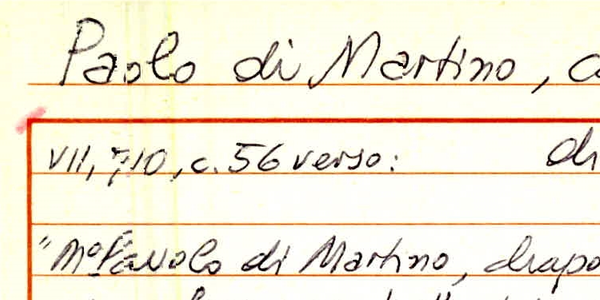 Paolo di Martino,
VII, 710, c. 56 verso: di
"Mº Pavolo di Martino, drapo